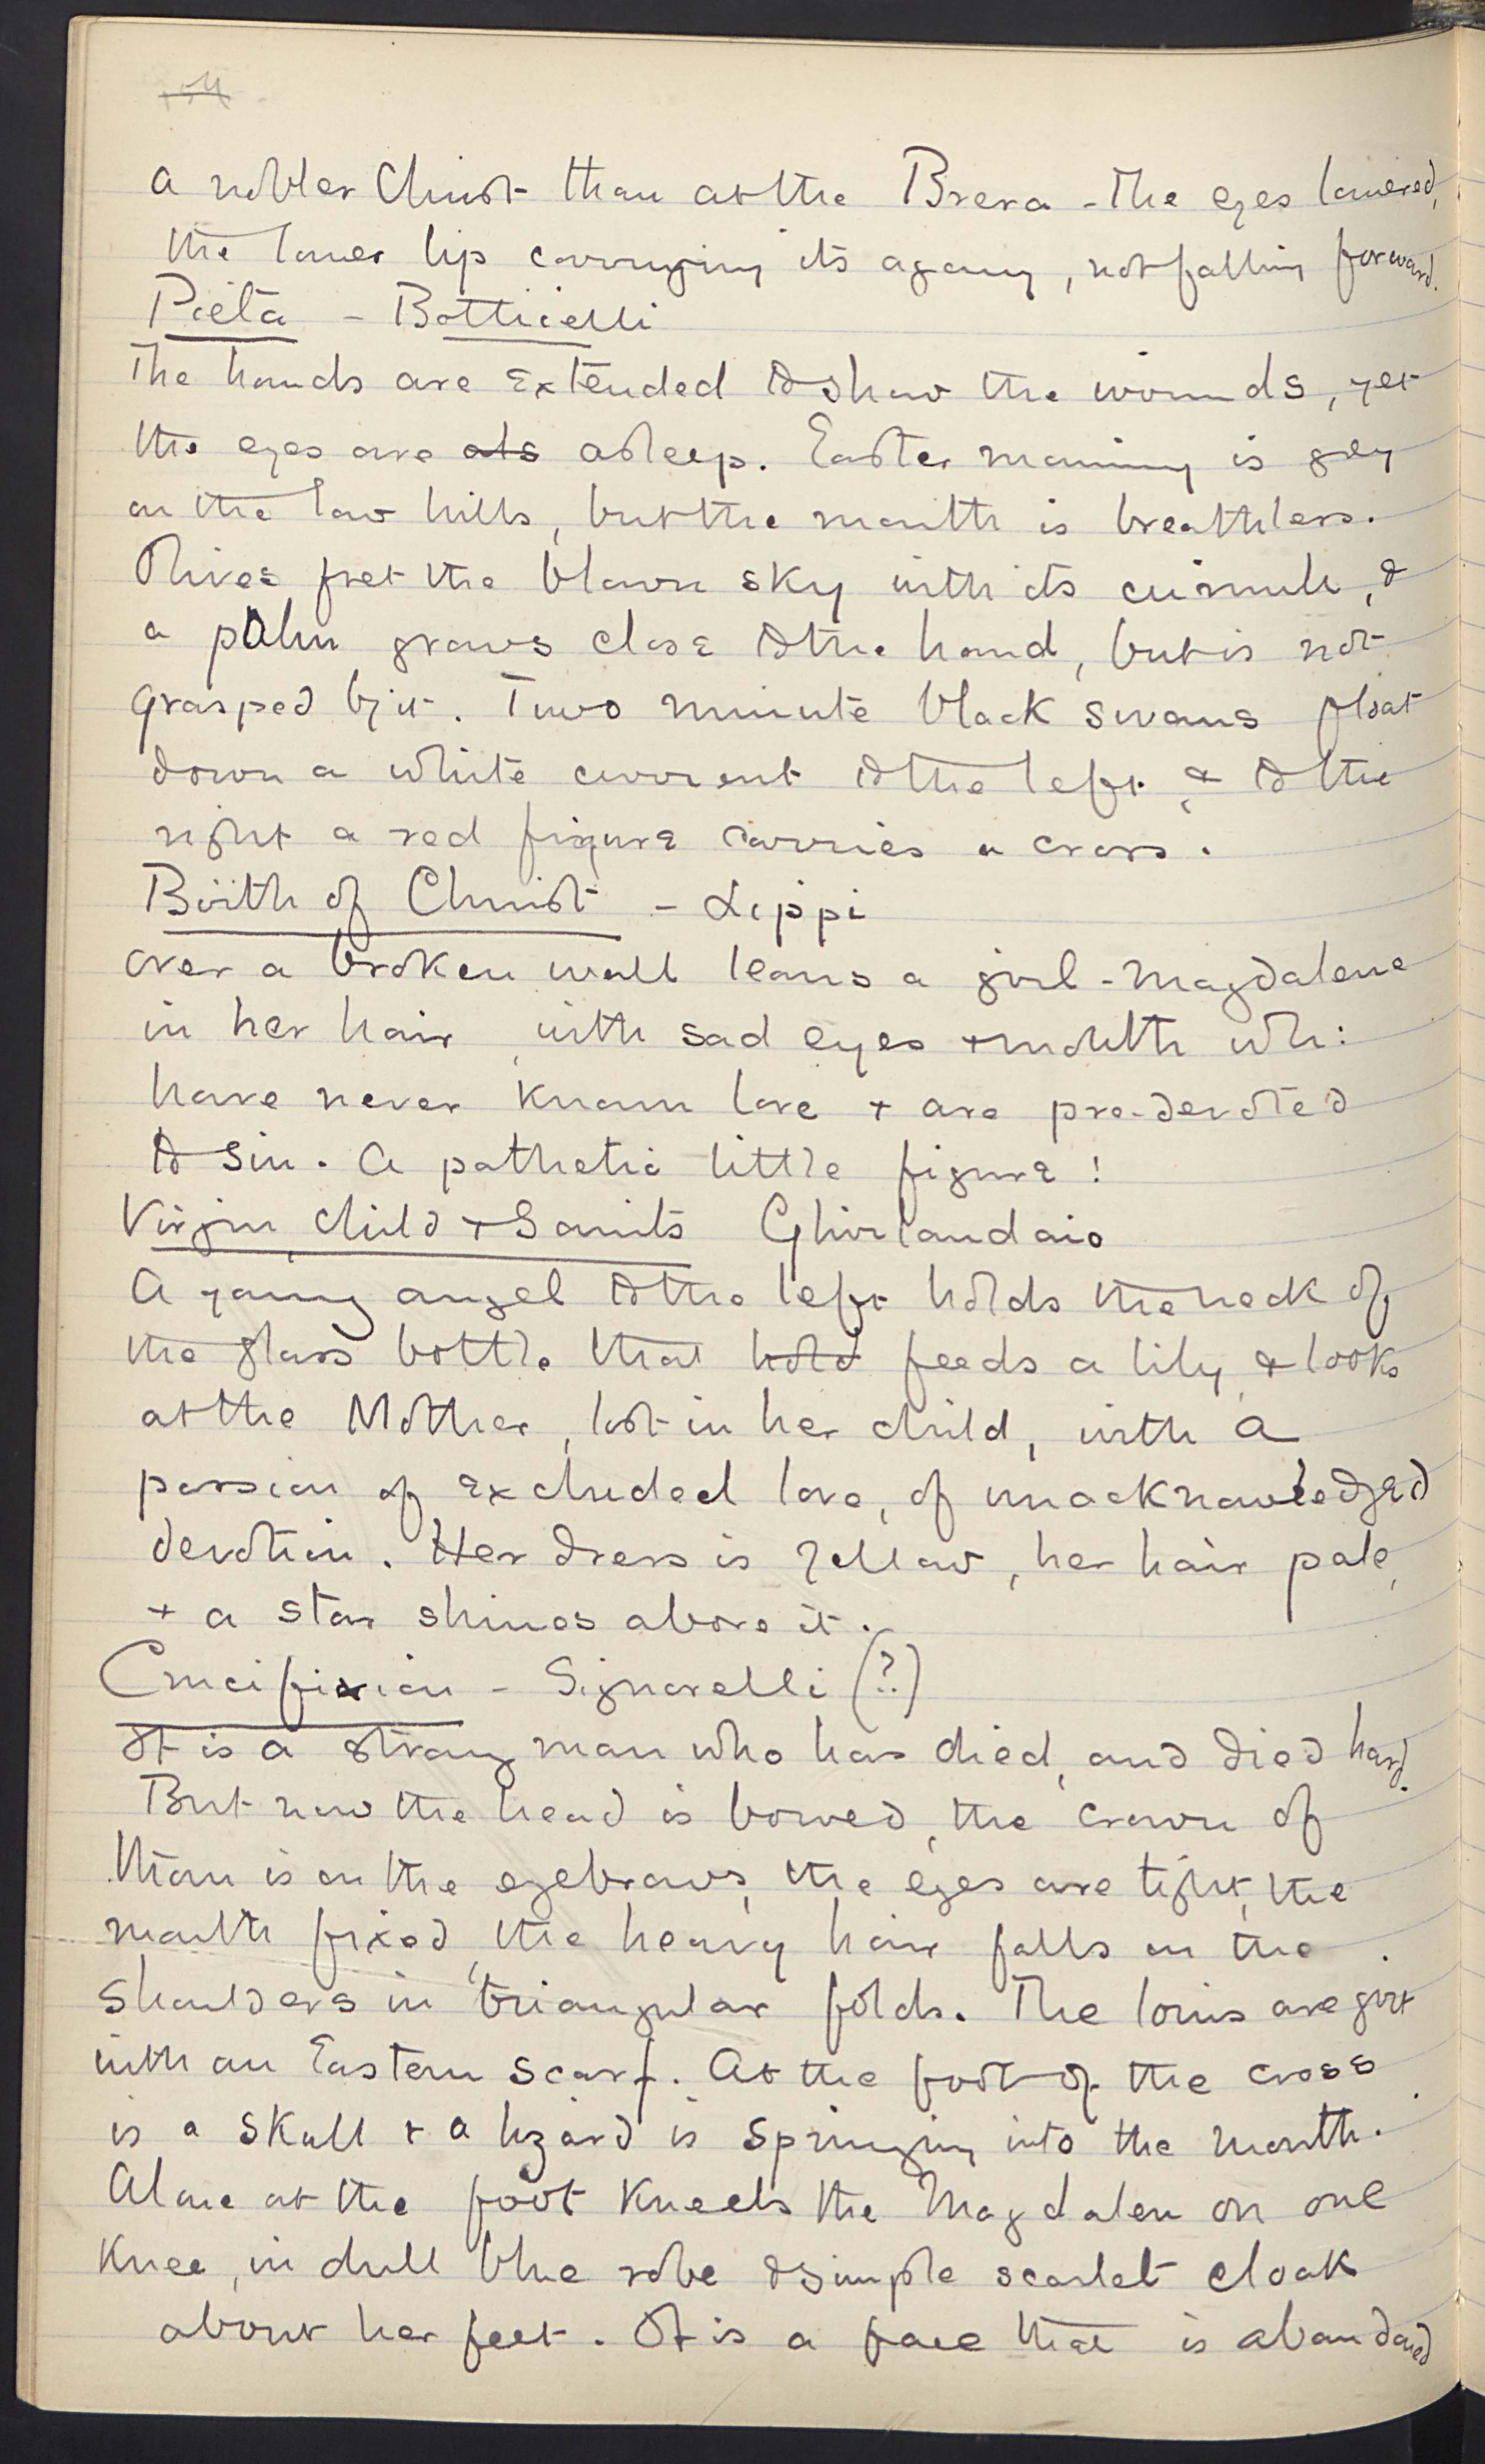 a nobler Christ than at the Brera - the eyes lowered,
the lower lip carrying its agony, not falling forward.
Pietà - Botticelli
The hands are extended to show the wounds, yet
the eyes are als asleep. Easter morning is grey
on the low hills, but the mouth is breathless.
Olives fret the blown sky with its cumuli, &
a palm grows close to the hand, but is not
grasped by it. Two minute black swans float
down a white current to the left, & to the
right a red figure carries a cross.
Birth of Christ - Lippi
over a broken wall leans a girl - Magdalene
in her hair, with sad eyes + mouth wh:
have never known love + are pre-devoted
to sin. A pathetic little figure!
Virgin, Child + Saints Ghirlandaio
A young angel to the left holds the neck of
the glass bottle that hold feeds a lily, & looks
at the Mother, lost in her child, with a
passion of excluded love, of unacknowledged
devotion. Her dress is yellow, her hair pale,
+ a star shines above it.
Crucifixion - Signorelli (?)
It is a strong man who has died, and died hard.
But now the head is bowed, the crown of
thorn is on the eyebrows, the eyes are tight, the
mouth fixed, the heavy hair falls on the
shoulders in triangular folds. The loins are girt
with an Eastern scarf. At the foot of the cross
is a skull + a lizard is springing into the mouth.
Alone at the foot kneels the Magdalen on one
knee, in dull blue robe & simple scarlet cloak
about her feet. It is a face that is abandoned